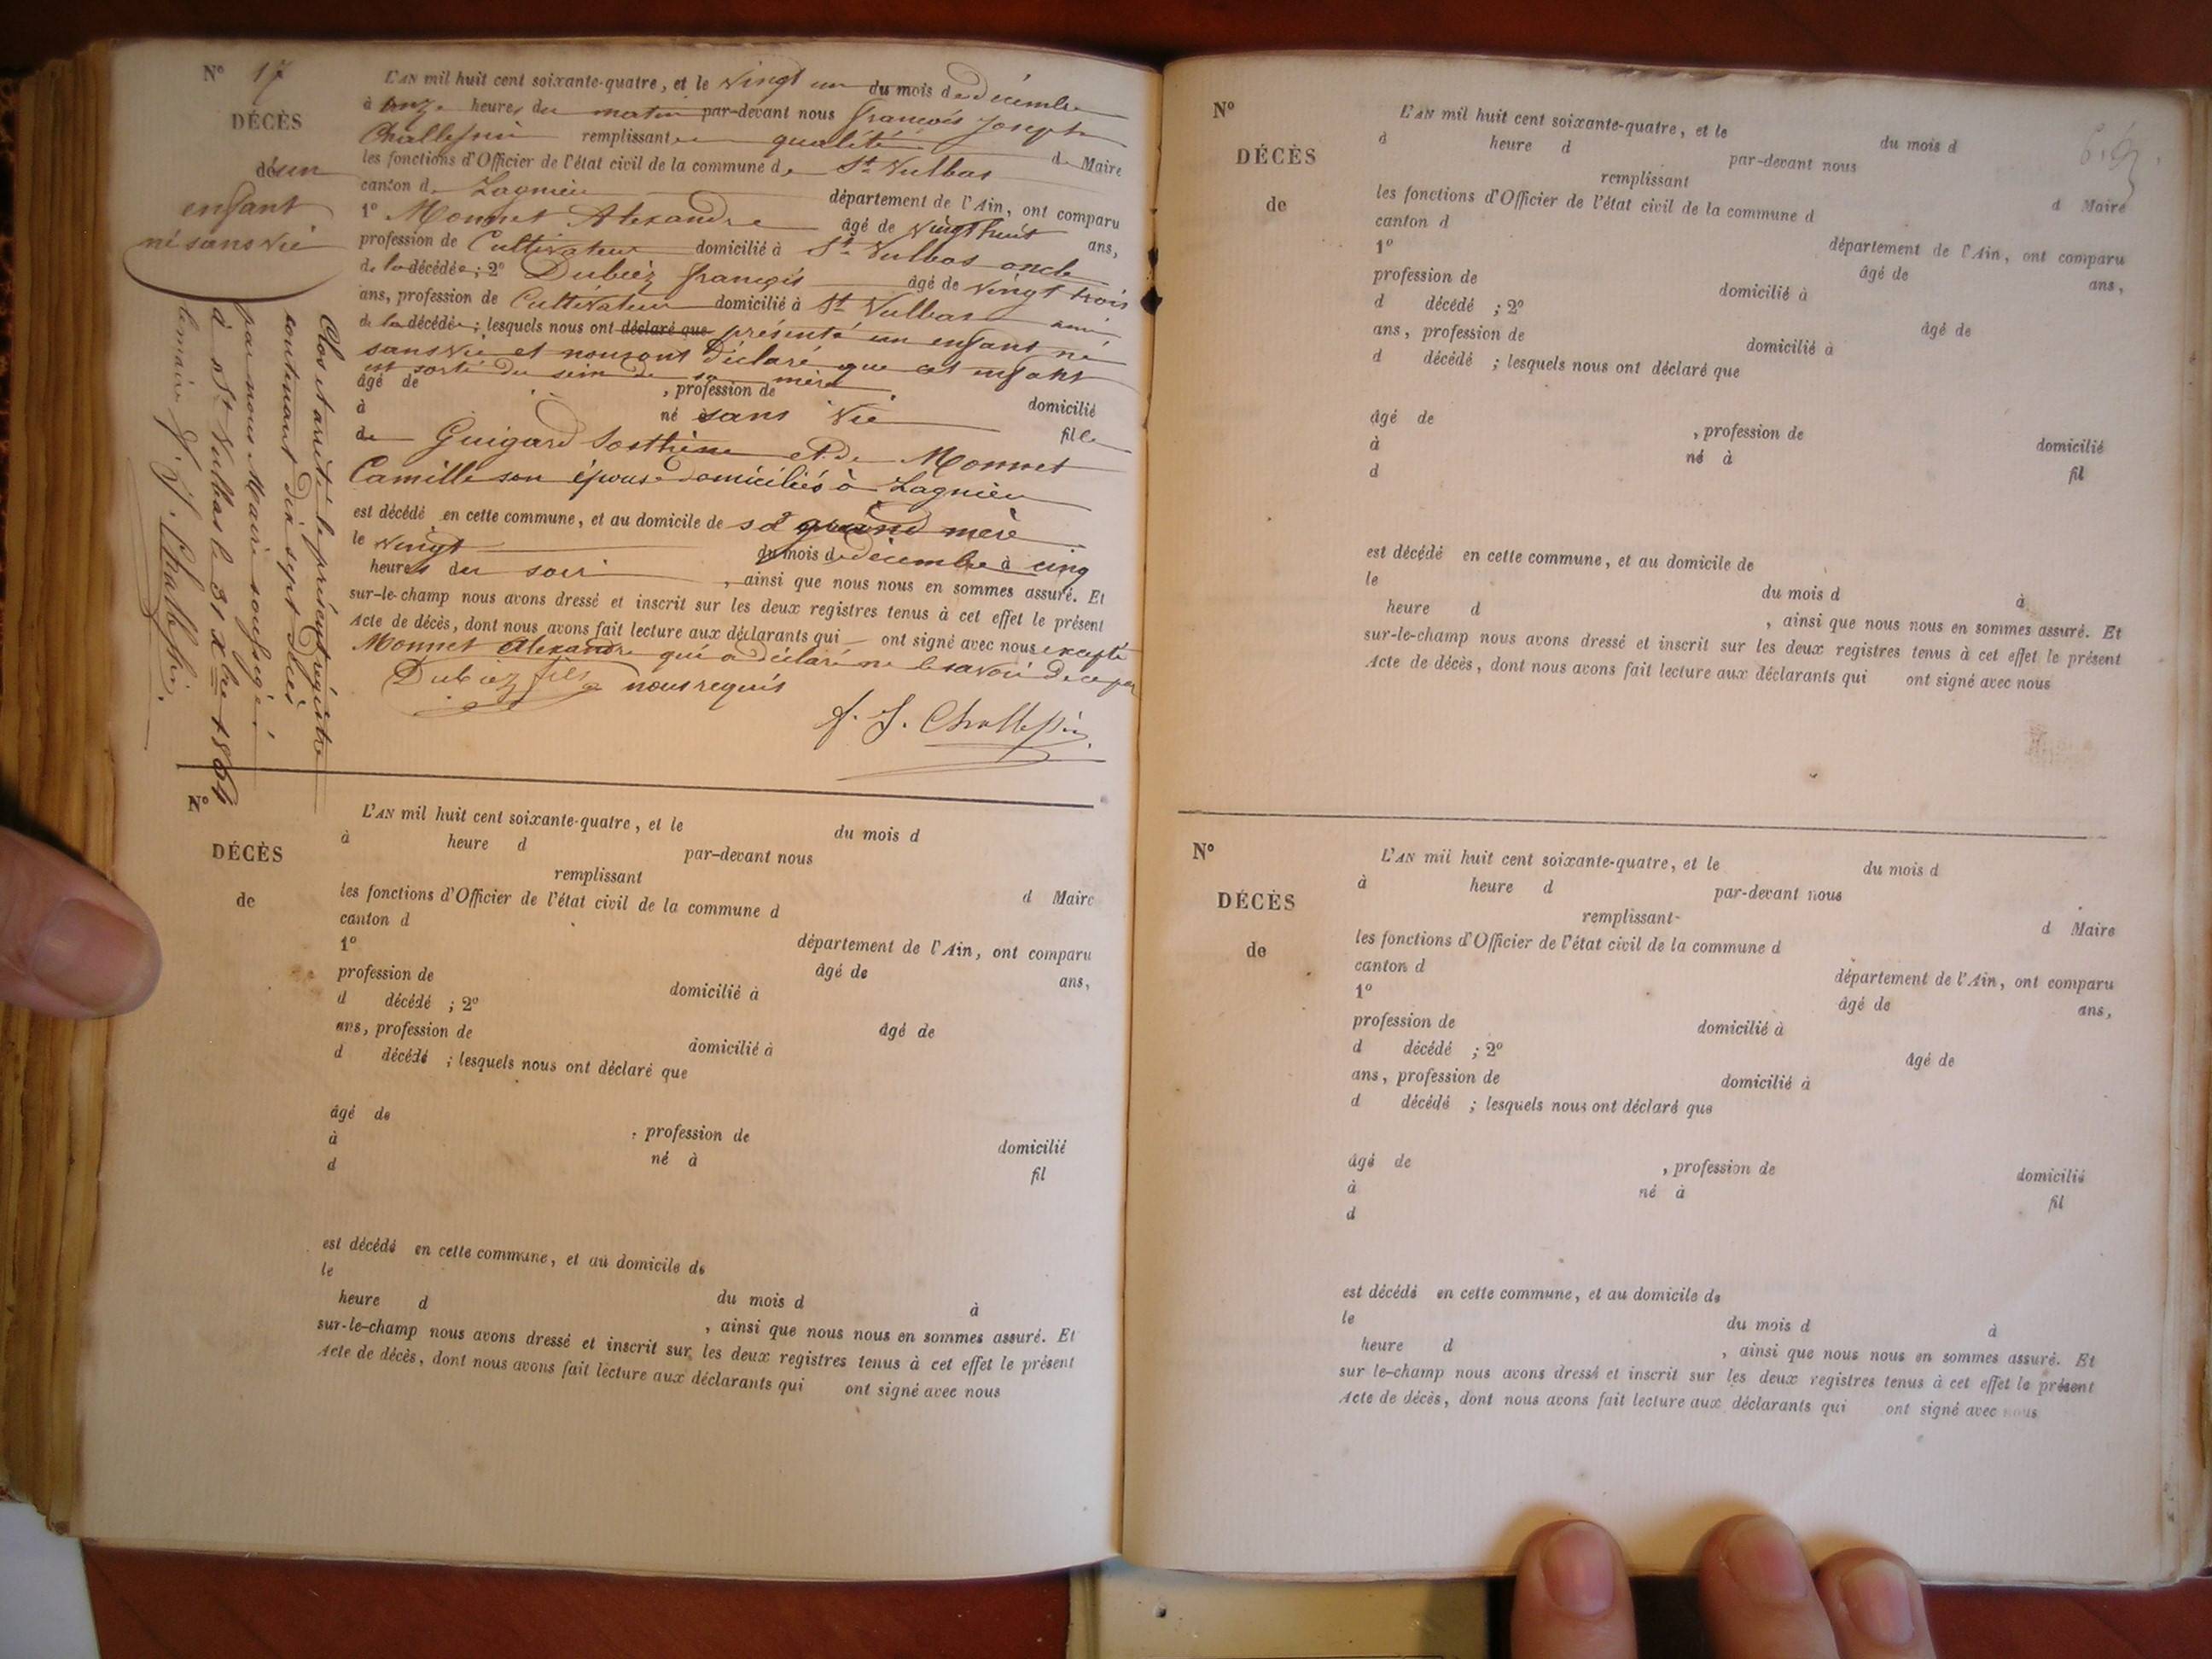 N° 17
DÉCÈS
d'un
enfant
né sans vie
L'AN mil huit cent soixante-quatre, et le vingt un du mois de décembre
à onze heures du matin par-devant nous françois Joseph
Challessin remplissant en qualité de Maire
les fonctions d'Officier de l'état civil de la commune de St Vulbas
canton de Lagnieu département de l'Ain, ont comparu
1° Monnet Alexandre âgé de vingt huit ans,
profession de Cultivateur domicilié à St Vulbas oncle
de la décédée; 2° Dubiez françois âgé de vingt trois
ans, profession de Cultivateur domicilié à St Vulbas ami
de la décédée; lesquels nous ont déclaré que présenté un enfant né
sans vie et nous ont déclaré que cet enfant
est sorti du sein de sa mère
âgé de , profession de domicilié
à né sans vie
de fille
Guigard Sosthène et de Monnet
Camille son épouse domiciliés à Lagnieu
est décédé en cette commune, et au domicile de sa grand mère
le vingt du mois de décembre à cinq
heures du soir , ainsi que nous nous en sommes assuré. Et
sur-le-champ nous avons dressé et inscrit sur les deux registres tenus à cet effet le présent
Acte de décès, dont nous avons fait lecture aux déclarants qui ont signé avec nous excepté
Monnet Alexandre qui a déclaré ne le savoir de ce par
Dubiez fils nous requis
f. J. Challessin
Clos et arrêté le présent régistre
contenant dix sept décès
par nous Maire soussigné
à St Vulbas le 31 xbre 1864
le maire f. J. Challessin
N°
DÉCÈS
de
L'AN mil huit cent soixante-quatre, et le du mois d
à heure d par-devant nous
remplissant
les fonctions d'Officier de l'état civil de la commune d d Maire
canton d département de l'Ain, ont comparu
1° âgé de ans,
profession de domicilié à
d décédé ; 2° âgé de
ans, profession de domicilié à
d décédé ; lesquels nous ont déclaré que
âgé de , profession de domicilié
à né à
d fil
est décédé en cette commune, et au domicile de
le du mois d à
heure d , ainsi que nous nous en sommes assuré. Et
sur-le-champ nous avons dressé et inscrit sur les deux registres tenus à cet effet le présent
Acte de décès, dont nous avons fait lecture aux déclarants qui ont signé avec nous
N°
DÉCÈS
de
L'AN mil huit cent soixante-quatre, et le du mois d
à heure d par-devant nous
remplissant d Maire
les fonctions d'Officier de l'état civil de la commune d
canton d département de l'Ain, ont comparu
1° âgé de ans,
profession de domicilié à
d décédé ; 2° âgé de
ans, profession de domicilié à
d décédé ; lesquels nous ont déclaré que
âgé de , profession de domicilié
à né à
d fil
est décédé en cette commune, et au domicile de
le du mois d à
heure d , ainsi que nous nous en sommes assuré. Et
sur-le-champ nous avons dressé et inscrit sur les deux registres tenus à cet effet le présent
Acte de décès, dont nous avons fait lecture aux déclarants qui ont signé avec nous
N°
DÉCÈS
de
L'AN mil huit cent soixante-quatre, et le du mois d
à heure d par-devant nous
remplissant d Maire
les fonctions d'Officier de l'état civil de la commune d
canton d département de l'Ain, ont comparu
1° âgé de ans,
profession de domicilié à
d décédé ; 2° âgé de
ans, profession de domicilié à
d décédé ; lesquels nous ont déclaré que
âgé de , profession de domicilié
à né à
d fil
est décédé en cette commune, et au domicile de
le du mois d à
heure d , ainsi que nous nous en sommes assuré. Et
sur le-champ nous avons dressé et inscrit sur les deux registres tenus à cet effet le présent
Acte de décès, dont nous avons fait lecture aux déclarants qui ont signé avec nous